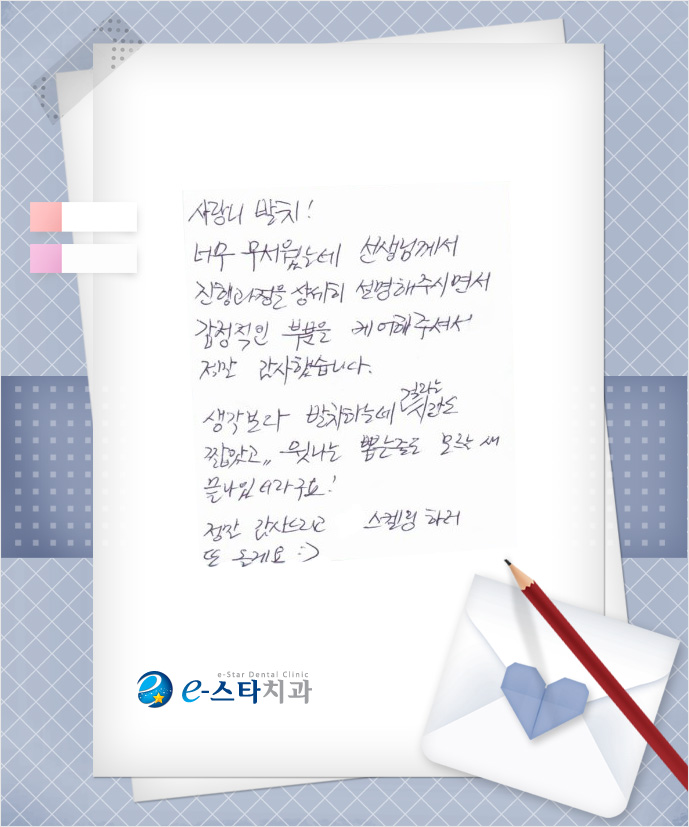 사랑니 발치!
너무 무서웠는데 선생님께서
진행과정을 상세히 설명해주시면서
감정적인 부분을 케어해주셔서
정말 감사했습니다.
생각보다 발치하는데 걸리는 시간도
짧았고,, 윗니는 뽑는줄도 모르는 새
끝나있더라구요!
정말 감사드리고 스켈링 하러
또 올게요 :)
e-Star Dental Clinic
e-스타치과